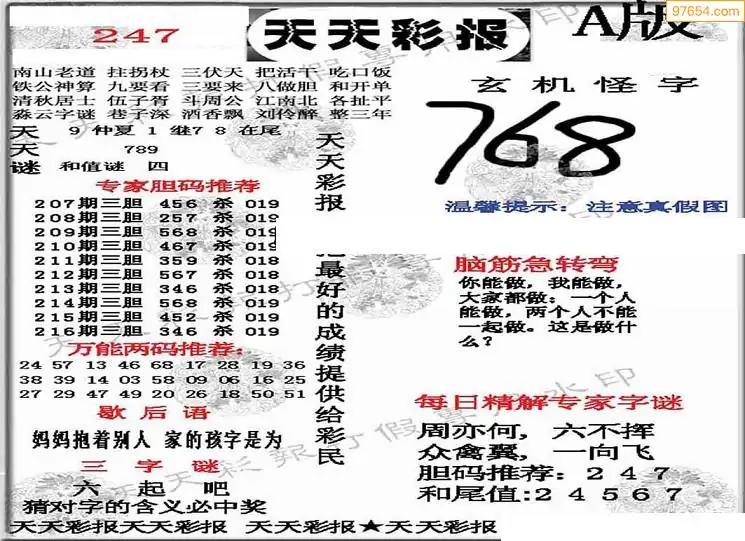 97654.com
247
天天彩报
A版
南山老道 拄拐杖 三伏天 把活干 吃口饭
铁公神算 九要看 三要来 八做胆 和开单
清秋居士 伍子胥 斗周公 江南北 各扯平
淼云字谜 巷子深 酒香飘 刘伶醉 整三年
天 9 仲夏 1 继7 8 在尾
天 789
谜 和值谜 四
专家胆码推荐
207期三胆 456 杀 019
208期三胆 257 杀 019
209期三胆 568 杀 019
210期三胆 467 杀 019
211期三胆 359 杀 018
212期三胆 567 杀 018
213期三胆 346 杀 018
214期三胆 568 杀 019
215期三胆 452 杀 019
216期三胆 346 杀 019
万能两码推荐:
24 57 13 46 68 17 28 19 36
38 39 14 03 58 09 06 16 25
27 29 47 49 20 26 18 50 51
歇后语
妈妈抱着别人 家的孩字是为
三字谜
六起吧
猜对字的含义必中奖
天天彩报
最好的成绩提供给彩民
玄机怪字
768
温馨提示: 注意真假图
脑筋急转弯
你能做，我能做，
大家都做；一个人
能做，两个人不能
一起做。这是做什
么？
每日精解专家字谜
周亦何，六不挥
众禽翼，一向飞
胆码推荐: 2 4 7
和尾值:2 4 5 6 7
天天彩报天天彩报 天天彩报★天天彩报